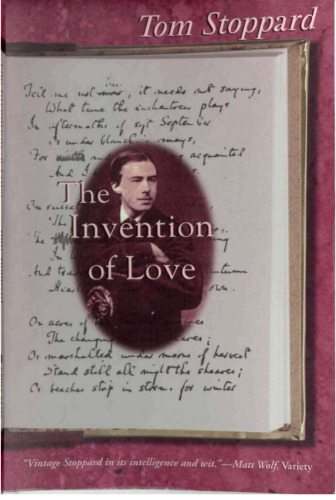 Tom Stoppard
Tell me not here, it needs not saying,
What tune the enchantress plays
In aftermaths of soft September
Or under blanch mays,
For
acquainted
And I
The
Invention
of Love
On acres of
The changing
Or marshalled under moons of harvest
Stand still all night the sheaves;
Or beeches strip in storms for winter
"Vintage Stoppard in its intelligence and wit."—Matt Wolf, Variety